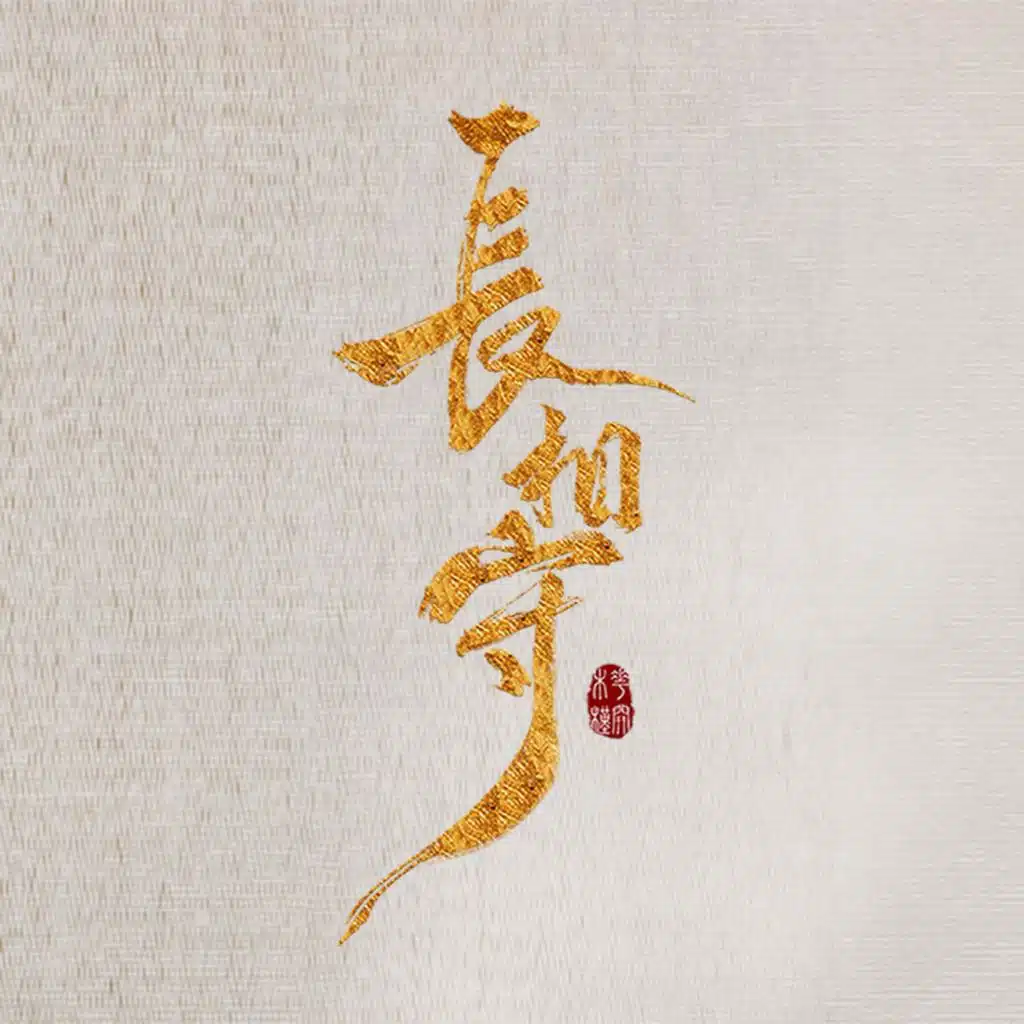 長相守